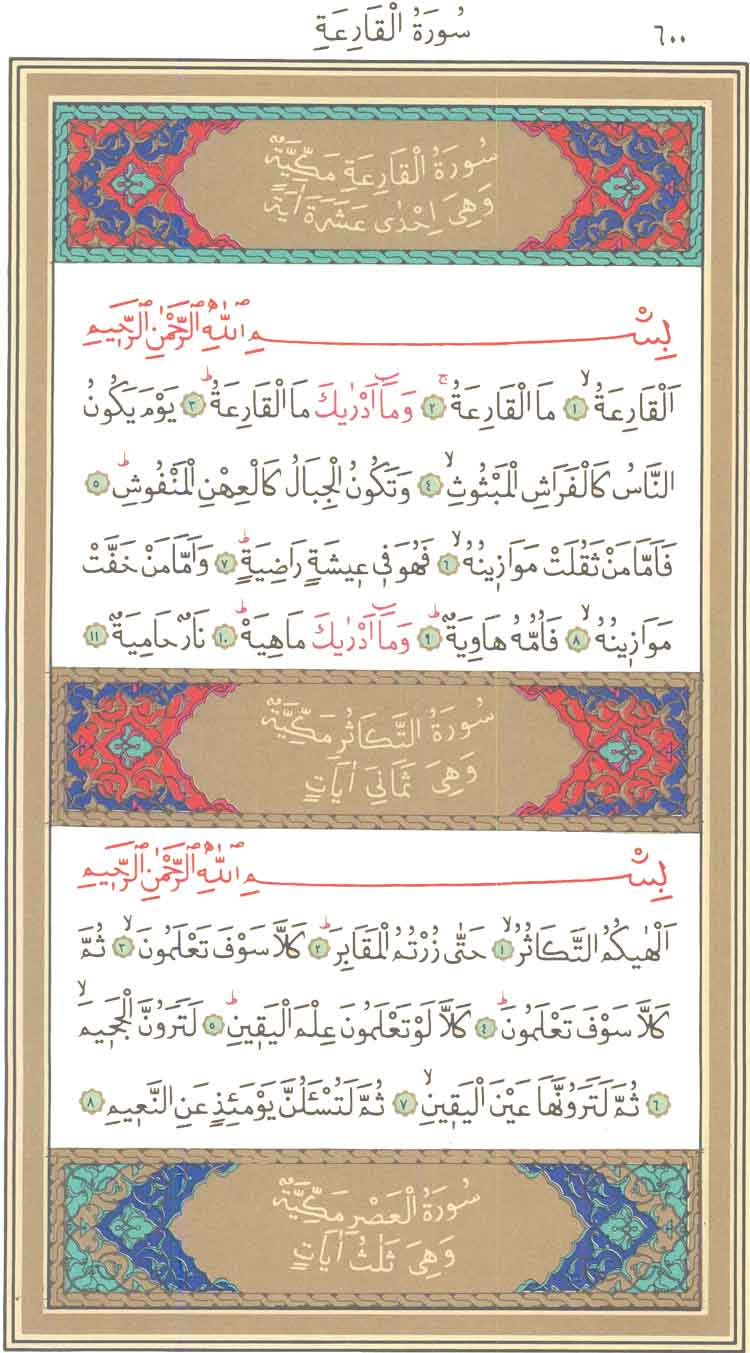 ٦٠٠ سُورَةُ الْقَارِعَةِ
سُورَةُ الْقَارِعَةِ مَكِّيَّةٌ
وَهِىَ اِحْدٰى عَشْرَةَ اٰيَةً
بِسْمِ اللّٰهِ الرَّحْمٰنِ الرَّحِيمِ
اَلْقَارِعَةُۙ ﴿١﴾ مَا الْقَارِعَةُۚ ﴿٢﴾ وَمَٓا اَدْرٰيكَ مَا الْقَارِعَةُۜ ﴿٣﴾ يَوْمَ يَكُونُ
النَّاسُ كَالْفَرَاشِ الْمَبْثُوثِۙ ﴿٤﴾ وَتَكُونُ الْجِبَالُ كَالْعِهْنِ الْمَنْفُوشِۜ ﴿٥﴾
فَاَمَّا مَنْ ثَقُلَتْ مَوَازِينُهُۙ ﴿٦﴾ فَهُوَ فِى عِيشَةٍ رَاضِيَةٍۜ ﴿٧﴾ وَاَمَّا مَنْ خَفَّتْ
مَوَازِينُهُۙ ﴿٨﴾ فَاُمُّهُ هَاوِيَةٌۜ ﴿٩﴾ وَمَٓا اَدْرٰيكَ مَاهِيَهْۜ ﴿١٠﴾ نَارٌ حَامِيَةٌ ﴿١١﴾
سُورَةُ التَّكَاثُرِ مَكِّيَّةٌ
وَهِىَ ثَمَانِىَ اٰيَاتٍ
بِسْمِ اللّٰهِ الرَّحْمٰنِ الرَّحِيمِ
اَلْهٰيكُمُ التَّكَاثُرُۙ ﴿١﴾ حَتّٰى زُرْتُمُ الْمَقَابِرَۜ ﴿٢﴾ كَلَّا سَوْفَ تَعْلَمُونَۙ ﴿٣﴾ ثُمَّ
كَلَّا سَوْفَ تَعْلَمُونَۜ ﴿٤﴾ كَلَّا لَوْ تَعْلَمُونَ عِلْمَ الْيَقِينِۜ ﴿٥﴾ لَتَرَوُنَّ الْجَحِيمَۙ
﴿٦﴾ ثُمَّ لَتَرَوُنَّهَا عَيْنَ الْيَقِينِۙ ﴿٧﴾ ثُمَّ لَتُسْـَٔلُنَّ يَوْمَئِذٍ عَنِ النَّعِيمِ ﴿٨﴾
سُورَةُ الْعَصْرِ مَكِّيَّةٌ
وَهِىَ ثَلٰثُ اٰيَاتٍ